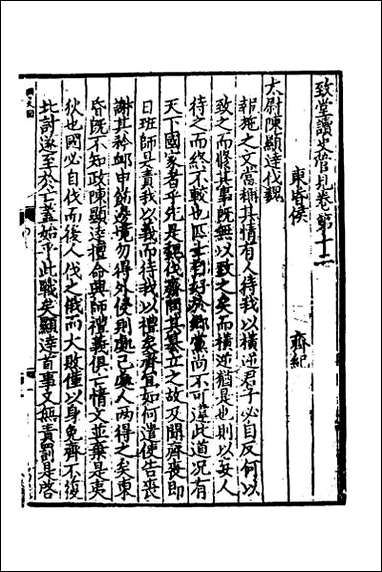 致堂讀史管見卷第十二
東昏侯　齊紀
太尉陳顯達伐魏
報施之文當稱其情有人待我以橫逆君子必自反何以
致之而修其事既無以致之矣而橫逆猶是也則以妄人
待之而終不較也匹士有好於鄉黨尚不可違此道况有
天下國家者乎先是魏伐齊問其簒立之故又聞齊喪即
日班師是責我以義而待我以禮矣齊宜如何遣使告喪
謝其矜卹申飭邊境勿得外侵則處己處人兩得之矣東
昏既不知政陳顯逹擅命興師禮義俱亡情文並棄是夷
狄也國必自伐而後人伐之俄而大敗僅以身免齊不復
此討遂至於亡蓋始乎此戰矣顯逹首事又無責罰是啓